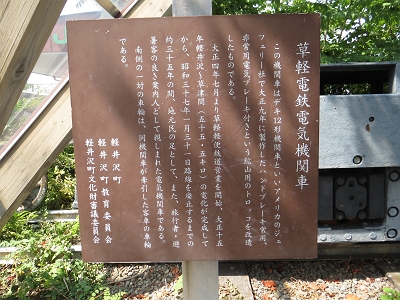 草軽電鉄電気機関車
この機関車はデキ12形機関車といいアメリカのジェ
フェリー社で大正九年に製作したハンドブレーキ常用、
非常用電気ブレーキ付きという鉱山用のトロッコを改造
したものである。
大正四年七月より草軽軽便鉄道営業を開始、大正十五
年軽井沢〜草津間(五十五・五キロ)の電化が完成して
から、昭和三十七年一月三十一日路線を廃止するまでの
約三十五年の間、地元民の足として、また、旅行者・避
暑客の良き案内人として親しまれた電気機関車である。
南側の一対の車輪は、同機関車が牽引した客車の車輪
である。
軽井沢町
軽井沢町教育委員会
軽井沢町文化財審議委員会